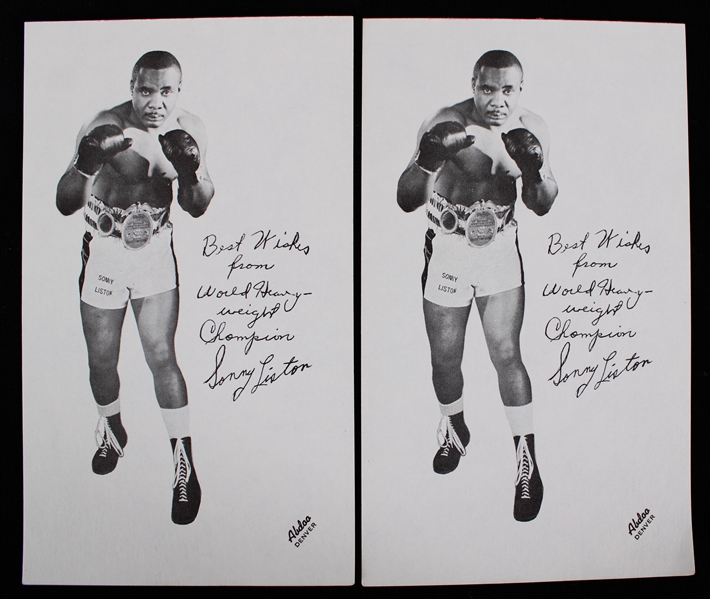 SONNY
LISTON
Best Wishes
from
World Heavy-
weight
Champion
Sonny Liston
Abdoo
DENVER
SONNY
LISTON
Best Wishes
from
World Heavy-
weight
Champion
Sonny Liston
Abdoo
DENVER